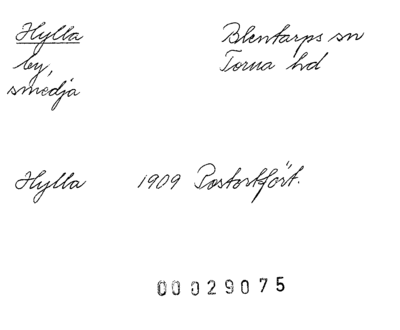 Hylla
by,
smedja
Blentarps sn
Torna hd
Hylla 1909 Postortför̈t.
00029075